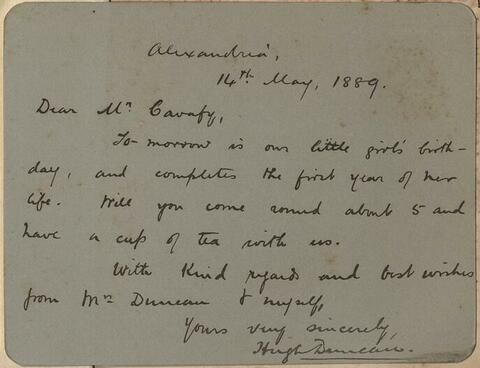 Alexandria,
14th May, 1889.
Dear Mr Cavafy,
To-morrow is our little girl's birth-
day, and completes the first year of her
life. Will you come round about 5 and
have a cup of tea with us.
With kind regards and best wishes
from Mrs Duncan & myself,
Yours very sincerely,
Hugh Duncan.